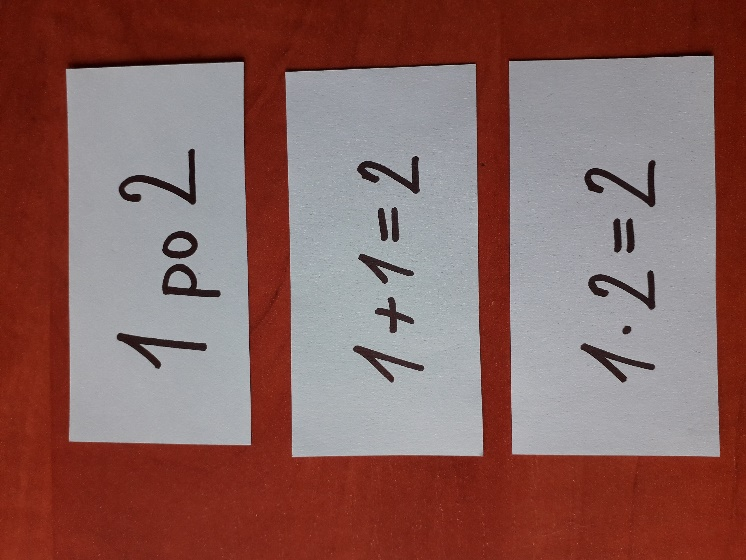 1 po 2
1 + 1 = 2
1 · 2 = 2